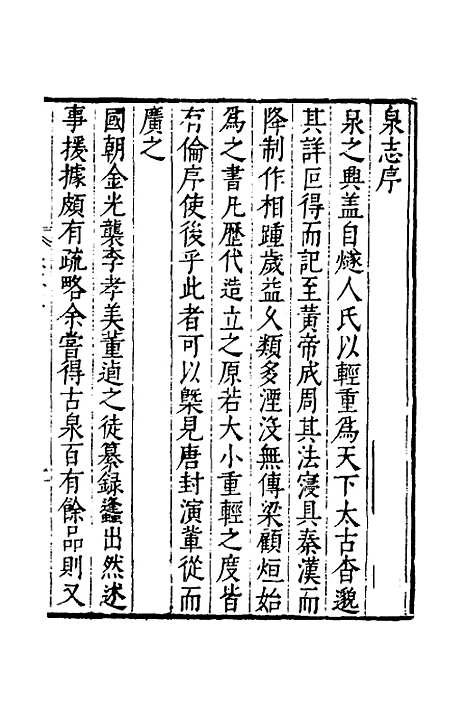 泉志序
泉之興盖自燧人氏以輕重爲天下太古杳邈
其詳叵得而記至黃帝成周其法寖具秦漢而
降制作相踵歲益久類多湮沒無傳梁顧烜始
爲之書凡歷代造立之原若大小重輕之度皆
有倫序使後乎此者可以槩見唐封演輩從而
廣之
國朝金光襲李孝美董逌之徒纂錄蠭出然述
事援據頗有疏略余嘗得古泉百有餘品則又